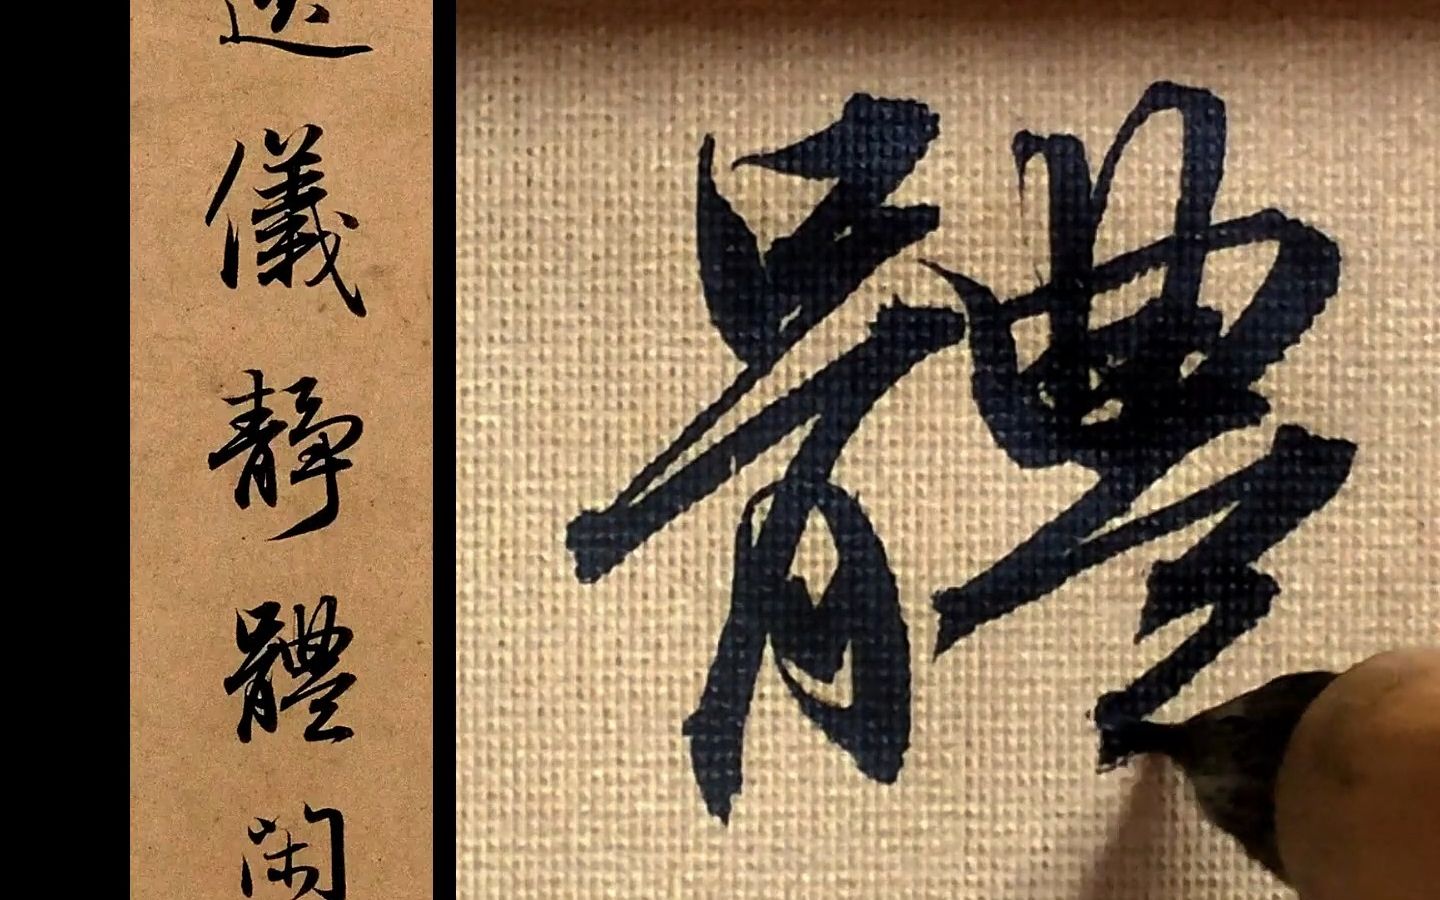 逸
儀
靜
體
閑
體